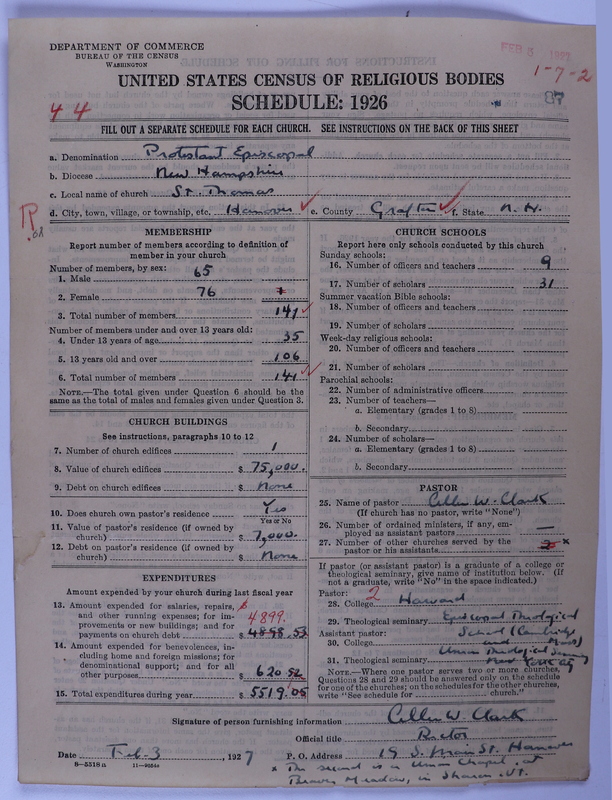 DEPARTMENT OF COMMERCE
BUREAU OF THE CENSUS
WASHINGTON
FEB 5 1927
1-7-2
UNITED STATES CENSUS OF RELIGIOUS BODIES
44
SCHEDULE: 1926
87
FILL OUT A SEPARATE SCHEDULE FOR EACH CHURCH. SEE INSTRUCTIONS ON THE BACK OF THIS SHEET
a. Denomination Protestant Episcopal
b. Diocese New Hampshire
c. Local name of church St. Thomas
d. City, town, village, or township, etc. Hanover e. County Grafton f. State N. H.
R
.08
MEMBERSHIP
Report number of members according to definition of
member in your church
Number of members, by sex:
1. Male 65
2. Female 76
3. Total number of members 141
Number of members under and over 13 years old:
4. Under 13 years of age 35
5. 13 years old and over 106
6. Total number of members 141
NOTE.—The total given under Question 6 should be
same as the total of males and females given under Question 3.
CHURCH BUILDINGS
See instructions, paragraphs 10 to 12
7. Number of church edifices 1
8. Value of church edifices $ 75,000.
9. Debt on church edifices $ None
10. Does church own pastor's residence? Yes
Yes or No
11. Value of pastor's residence (if owned by
church) $ 7,000.
12. Debt on pastor's residence (if owned by
church) $ None
EXPENDITURES
Amount expended by your church during last fiscal year
13. Amount expended for salaries, repairs,
and other running expenses; for im-
provements or new buildings; and for
payments on church debt $ 4898.53
4899.
14. Amount expended for benevolences, in-
cluding home and foreign missions; for
denominational support; and for all
other purposes $ 620.52
15. Total expenditures during year $ 5519.05
CHURCH SCHOOLS
Report here only schools conducted by this church
Sunday schools:
16. Number of officers and teachers 9
17. Number of scholars 31
Summer vacation Bible schools:
18. Number of officers and teachers
19. Number of scholars
Week-day religious schools:
20. Number of officers and teachers
21. Number of scholars
Parochial schools:
22. Number of administrative officers
23. Number of teachers—
a. Elementary (grades 1 to 8)
b. Secondary
24. Number of scholars—
a. Elementary (grades 1 to 8)
b. Secondary
PASTOR
25. Name of pastor Cullen W. Clark
(If church has no pastor, write "None")
26. Number of ordained ministers, if any, em-
ployed as assistant pastors —
27. Number of other churches served by the
pastor or his assistants 2 x
If pastor (or assistant pastor) is a graduate of a college or
theological seminary, give name of institution below. (If
not a graduate, write "No" in the space indicated.)
Pastor: 2
28. College Harvard
29. Theological seminary Episcopal Theological
Assistant pastor: School (Cambridge
30. College and Mass)
Union Theological Seminary
31. Theological seminary New York City
NOTE.—Where one pastor serves two or more churches,
Questions 28 and 29 should be answered only on the schedule
for one of the churches; on the schedules for the other churches,
write "See schedule for church."
Signature of person furnishing information Cullen W. Clark
Official title Rector
Date Feb. 3, 1927 P. O. Address 19 S. Main St. Hanover
8—5518a 11—9054a
x The second is a Union Chapel at
Beaver Meadow, in Sharon Vt.